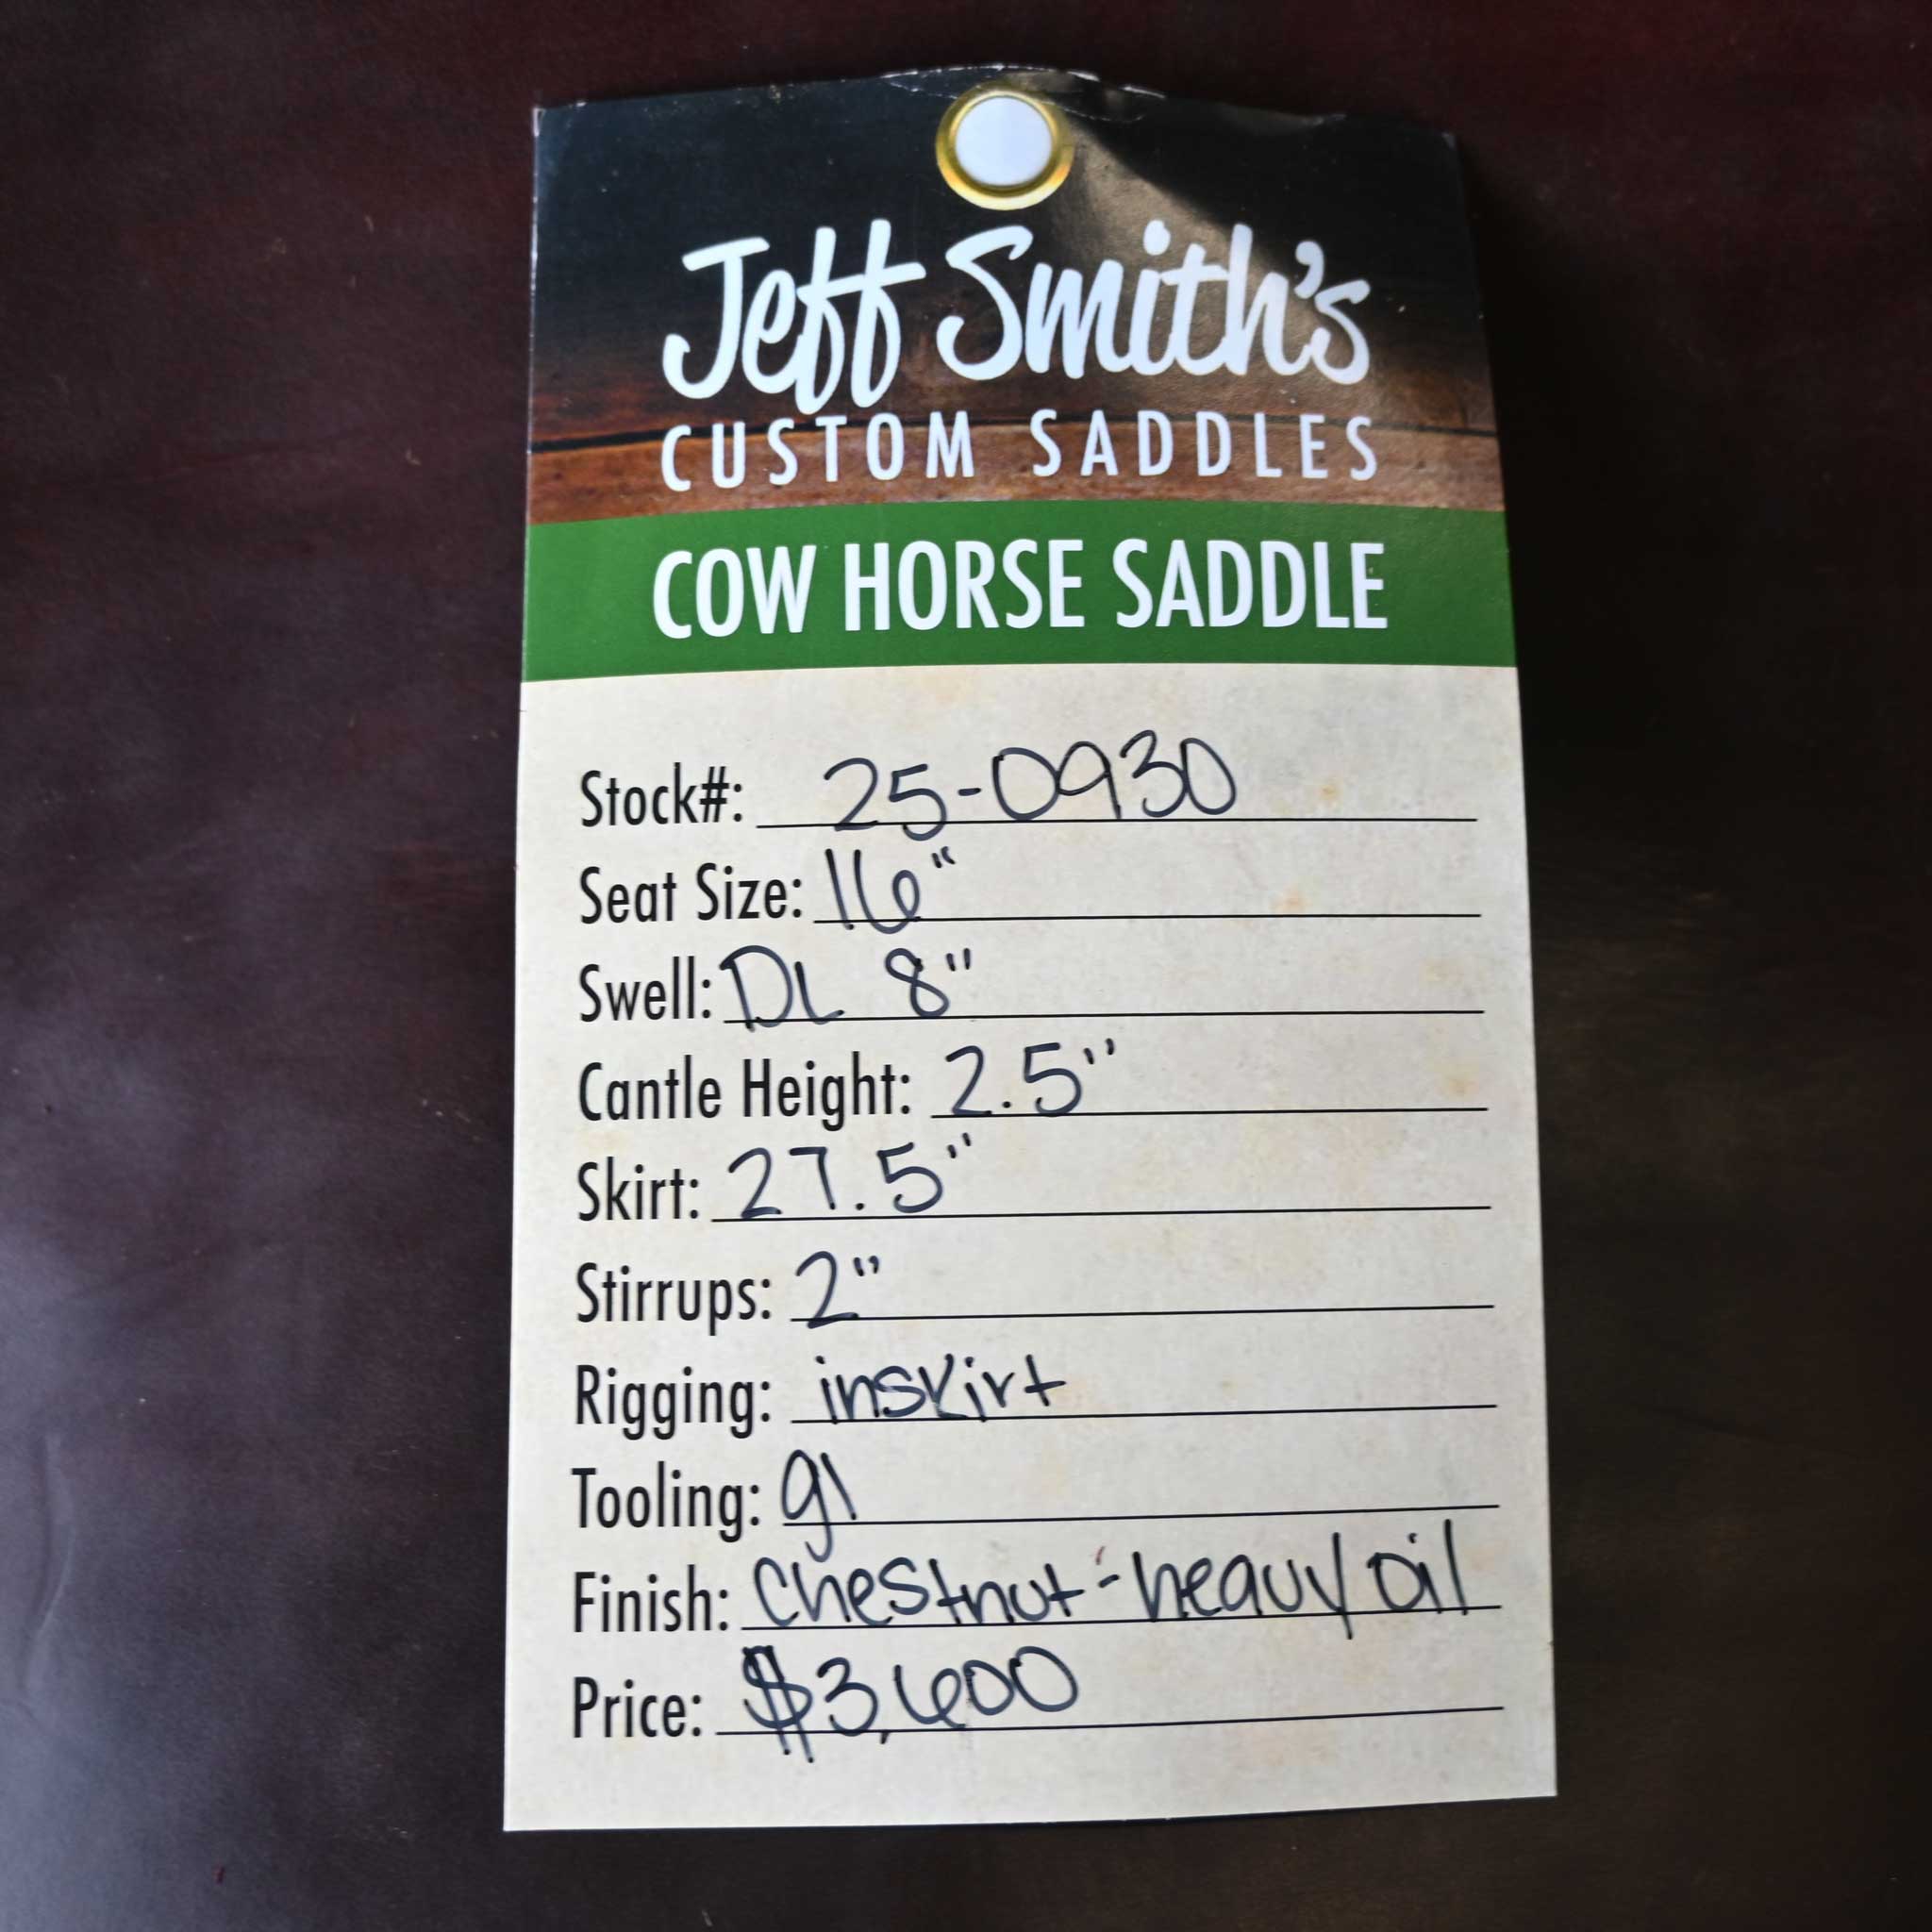 Jeff Smith's
CUSTOM SADDLES
COW HORSE SADDLE
Stock#: 25-0930
Seat Size: 16"
Swell: DL 8"
Cantle Height: 2.5"
Skirt: 27.5"
Stirrups: 2"
Rigging: inskirt
Tooling:
Finish: Chestnut - heavy oil
Price: $3,600